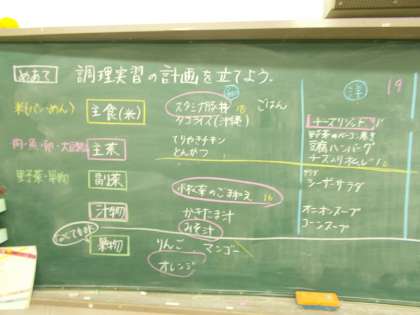 めあて 調理実習の計画を立てよう。
米(パン・めん) 主食(米) スタミナ豚丼 18 ごはん
タコライス(沖縄)
肉・魚・卵・大豆 主菜 てりやきチキン
とんかつ
野菜・果物 副菜 小松菜のごまあえ 16
汁物 かきたま汁
みそ汁
果物 りんご マンゴー
オレンジ
洋 19
チーズリゾット
野菜のベーコン巻き
豆腐ハンバーグ
サラダ
シーザーサラダ
オニオンスープ
コーンスープ